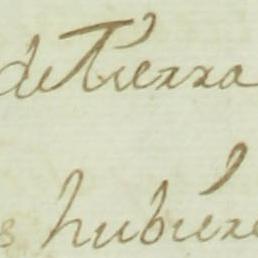 de Tierra
s hubiere